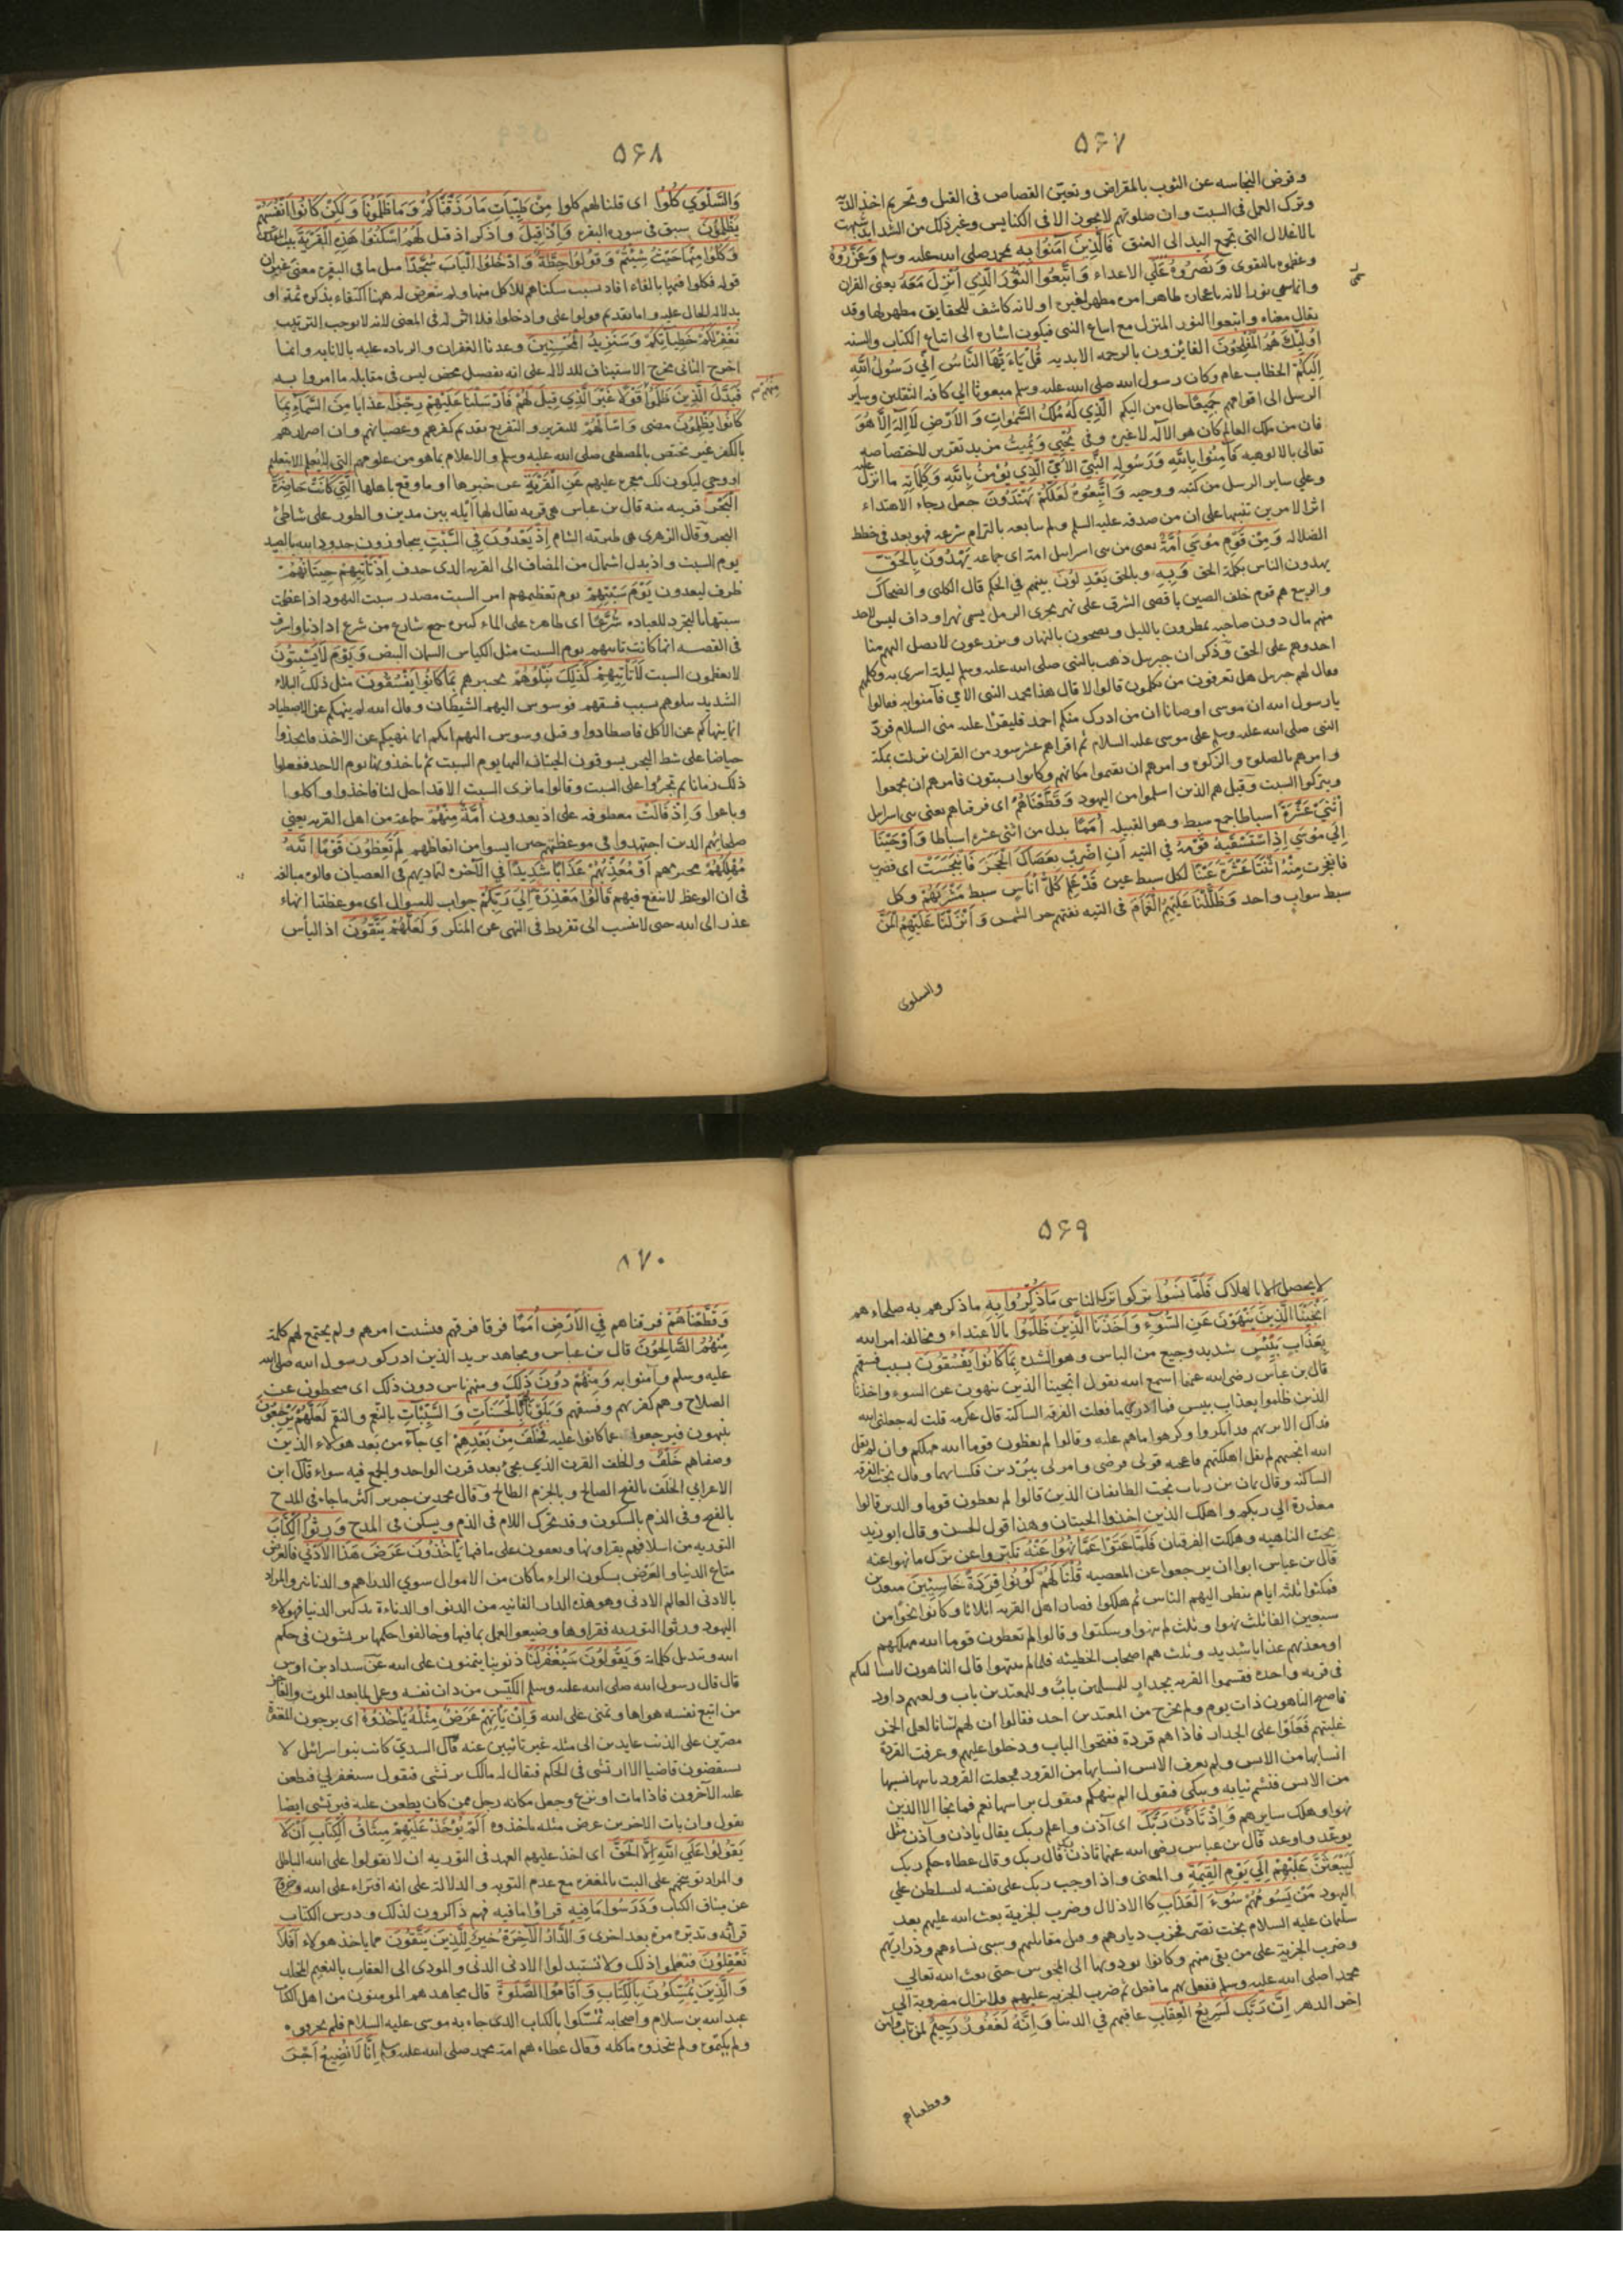 ٥٦٧
وقرض النجاسه عن الثوب بالمقراض وتعيين القصاص فى القتل وتحريم اخذ الدية
وترك العمل فى السبت وان صلوتهم لا يجوز الا فى الكنايس وغير ذلك من الشدايد شبهت
بالاغلال التى تجمع اليد الى العنق فَالَّذِينَ آمَنُوا بِهِ بمحمد صلى الله عليه وسلم وَعَزَّرُوهُ
وعظموه بالتقوى وَنَصَرُوهُ على الاعداء وَاتَّبَعُوا النُّورَ الَّذِي أُنْزِلَ مَعَهُ يعنى القران
وانما سمي نورا لانه باعجازه ظاهر امره مظهر لغيره او لانه كاشف للحقايق مظهر لها وقد
يقال معناه واتبعوا النور المنزل مع اتباع النبى فيكون اشارة الى اتباع الكتاب والسنه
أُولَئِكَ هُمُ الْمُفْلِحُونَ الفايزون بالرحمه الابديه قُلْ يَاءَيُّهَا النَّاسُ إِنِّي رَسُولُ اللَّهِ
إِلَيْكُمْ الخطاب عام وكان رسول الله صلى الله عليه وسلم مبعوثا الي كافه الثقلين وساير
الرسل الى اقوامهم جَمِيعًا حال من اليكم الَّذِي لَهُ مُلْكُ السَّمٰوَاتِ وَالْأَرْضِ لَا إِلَهَ إِلَّا هُوَ
فان من ملك العالم كان هو الاله لا غيره وفى يُحْيِي وَيُمِيتُ مزيد تقرير لاختصاصه
تعالى بالالوهيه فَآمِنُوا بِاللَّهِ وَرَسُولِهِ النَّبِيِّ الْأُمِّيِّ الَّذِي يُؤْمِنُ بِاللَّهِ وَكَلِمَاتِهِ ما انزل عليه
وعلي ساير الرسل من كتبه ووحيه وَاتَّبِعُوهُ لَعَلَّكُمْ تَهْتَدُونَ جعل رجاء الاهتداء
اثر الامرين تنبيها على ان من صدقه عليه السلم ولم يتابعه بالتزام شرعه فهو بعد فى خطط
الضلاله وَمِنْ قَوْمِ مُوسَى أُمَّةٌ يعنى من بنى اسرايل امة اى جماعه يَهْدُونَ بِالْحَقِّ
يهدون الناس بكلمة الحق وَبِهِ وبالحق يَعْدِلُونَ بينهم فى الحكم قال الكلبى والضحاك
والربيع هم قوم خلف الصين باقصى الشرق على نهر يجرى الرمل يسمى نهر اوداف ليس لاحد
منهم مال دون صاحبه يمطرون بالليل ويصحون بالنهار ويزرعون لا يصل اليهم منا
احد وهم على الحق وذكر ان جبريل ذهب بالنبى صلى الله عليه وسلم ليلة اسرى به وكلمهم
فقال لهم جبريل هل تعرفون من تكلمون قالوا لا قال هذا محمد النبى الامي فآمنوا به فقالوا
يا رسول الله ان موسى اوصانا ان من ادرك منكم احمد فليقرا عليه منى السلام فردّ
النبى صلى الله عليه وسلم على موسى عليه السلام ثم اقراهم عشر سور من القران نزلت بمكة
وامرهم بالصلوة والزكوة وامرهم ان يقيموا مكانهم وكانوا يسبتون فامرهم ان يجمعوا
ويتركوا السبت وقيل هم الذين اسلموا من اليهود وَقَطَّعْنَاهُمُ اى فرقناهم يعنى بنى اسرايل
اثْنَتَيْ عَشْرَةَ أَسْبَاطًا جمع سبط وهو القبيله أُمَمًا بدل من اثنتى عشرة اسباطا وَأَوْحَيْنَا
إِلَى مُوسَى إِذِ اسْتَسْقٰيهُ قَوْمُهُ فى التيه أَنِ اضْرِبْ بِعَصَاكَ الْحَجَرَ فَانْبَجَسَتْ اى فضرب
فانفجرت مِنْهُ اثْنَتَا عَشْرَةَ عَيْنًا لكل سبط عين قَدْ عَلِمَ كُلُّ أُنَاسٍ سبط مَشْرَبَهُمْ وكل
سبط سواب واحد وَظَلَّلْنَا عَلَيْهِمُ الْغَمَامَ فى التيه تقيهم حر الشمس وَأَنْزَلْنَا عَلَيْهِمُ الْمَنَّ
والسلوى
٥٦٨
وَالسَّلْوَى كُلُوا اى قلنا لهم كلوا مِنْ طَيِّبَاتِ مَا رَزَقْنَاكُمْ وَمَا ظَلَمُونَا وَلَكِنْ كَانُوا أَنْفُسَهُمْ
يَظْلِمُونَ سبق فى سورة البقره وَإِذْ قِيلَ واذكر اذ قيل لَهُمُ اسْكُنُوا هَذِهِ الْقَرْيَةَ بيت المقدس
وَكُلُوا مِنْهَا حَيْثُ شِئْتُمْ وَقُولُوا حِطَّةٌ وَادْخُلُوا الْبَابَ سُجَّدًا مثل ما فى البقره معنى غير ان
قوله فكلوا فيها بالفاء افاد تسبب سكناهم للاكل منها ولم يتعرض له ههنا اكتفاء بذكره ثمة او
بدلالة الحال عليه واما تقديم قولوا على وادخلوا فلا اثر له فى المعنى لانه لا يوجب الترتيب
نَغْفِرْ لَكُمْ خَطِيئَاتِكُمْ وَسَنَزِيدُ الْمُحْسِنِينَ وعد بالغفران والزياده عليه بالاثابه وانما
اخرج الثانى مخرج الاستيناف للدلالة على انه تفضل محض ليس فى مقابلة ما امروا به
فَبَدَّلَ الَّذِينَ ظَلَمُوا منهم قَوْلًا غَيْرَ الَّذِي قِيلَ لَهُمْ فَأَرْسَلْنَا عَلَيْهِمْ رِجْزًا عذابا مِنَ السَّمَاءِ بِمَا
كَانُوا يَظْلِمُونَ مضى وَاسْأَلْهُمْ للتقرير والتقريع بقديم كفرهم وعصيانهم وان اصرارهم
بالكفر غير مختص بالمصطفى صلى الله عليه وسلم والاعلام بما هو من علومهم التى لا تعلم الا بتعليم
او وحي ليكون لك معجزة عليهم عَنِ الْقَرْيَةِ عن خبرها او ما وقع باهلها الَّتِي كَانَتْ حَاضِرَةَ
الْبَحْرِ قريبه منه قال بن عباس هى قريه يقال لها أيله بين مدين والطور على شاطئ
البحر وقال الزهرى هى طبرية الشام إِذْ يَعْدُونَ فِي السَّبْتِ يتجاوزون حدود الله بالصيد
يوم السبت واذ بدل اشتمال من المضاف الى القريه الذى حذف إِذْ تَأْتِيهِمْ حِيتَانُهُمْ
ظرف ليعدون يَوْمَ سَبْتِهِمْ يوم تعظيمهم امر السبت مصدر سبت اليهود اذا عظمت
سبتها بالتجرد للعباده شُرَّعًا اى ظاهرة على الماء كثيره جمع شارع من شرع اذا دنا واشرف
فى القصه انها كانت تاتيهم يوم السبت مثل الكباش السمان البيض وَيَوْمَ لَا يَسْبِتُونَ
لا يعظمون السبت لَا تَأْتِيهِمْ كَذَلِكَ نَبْلُوهُمْ نختبرهم بِمَا كَانُوا يَفْسُقُونَ مثل ذلك البلاء
الشديد نبلوهم بسبب فسقهم فوسوس اليهم الشيطان وقال الله لم ينهكم عن الاصطياد
انما ينهاكم عن الاكل فاصطادوا وقيل وسوس اليهم انكم انما نهيتكم عن الاخذ فاتخذوا
حياضا على شط البحر يسوقون الحيتان اليها يوم السبت ثم ياخذونها يوم الاحد ففعلوا
ذلك زمانا ثم تجرؤا على السبت وقالوا ما نرى السبت الا قد احل لنا فاخذوا واكلوا
وباعوا وَإِذْ قَالَتْ معطوفه على اذ يعدون أُمَّةٌ مِنْهُمْ جماعة من اهل القريه يعنى
صلحائهم الذين اجتهدوا فى موعظتهم حتى ايسوا من اتعاظهم لِمَ تَعِظُونَ قَوْمًا اللَّهُ
مُهْلِكُهُمْ مخترمهم أَوْ مُعَذِّبُهُمْ عَذَابًا شَدِيدًا فى الآخرة لتماديهم فى العصيان قالوه مبالغه
فى ان الوعظ لا ينفع فيهم قَالُوا مَعْذِرَةً إِلَى رَبِّكُمْ جواب للسوال اى موعظتنا انهاء
عذر الى الله حتى لا ننسب الى تفريط فى النهى عن المنكر وَلَعَلَّهُمْ يَتَّقُونَ اذ اليأس
٥٦٩
لا يحصل الا بالهلاك فَلَمَّا نَسُوا تركوا ترك الناسى مَا ذُكِّرُوا بِهِ ما ذكرهم به صلحاءهم
أَنْجَيْنَا الَّذِينَ يَنْهَوْنَ عَنِ السُّوءِ وَأَخَذْنَا الَّذِينَ ظَلَمُوا بالاعتداء ومخالفه امر الله
بِعَذَابٍ بَئِيسٍ شديد وجيع من الباس وهو الشده بِمَا كَانُوا يَفْسُقُونَ بسبب فسقهم
قال بن عباس رضى الله عنهما اسمع الله يقول انجينا الذين ينهون عن السوء واخذنا
الذين ظلموا بعذاب بيس فما ادرى ما فعلت الفرقه الساكتة قال عكرمه قلت له جعلنى الله
فداك الا تريهم قد انكروا وكرهوا ما هم عليه وقالوا لم تعظون قوما الله مهلكهم وان لم يقل
الله انجيتهم لم يقل اهلكتهم فاعجبه قولى فرضى وامر لى ببردين فكسانيهما وقال نجت الفرقة
الساكته وقال يمان بن رباب نجت الطائفتان الذين قالوا لم تعظون قوما والذين قالوا
معذرة الي ربكم واهلك الذين اخذوا الحيتان وهذا قول الحسن وقال ابو زيد
نجت الناهيه وهلكت الفرقتان فَلَمَّا عَتَوْا عَمَّا نُهُوا عَنْهُ تكبروا عن ترك ما نهوا عنه
قال بن عباس ابوا ان يرجعوا عن المعصيه قُلْنَا لَهُمْ كُونُوا قِرَدَةً خَاسِئِينَ مبعدين
فمكثوا ثلثه ايام ينظر اليهم الناس ثم هلكوا فصار اهل القريه اثلاثا وكانوا نحوا من
سبعين الفا ثلث نهوا وثلث لم ينهوا وسكتوا وقالوا لم تعظون قوما الله مهلكهم
او معذبهم عذابا شديد وثلث هم اصحاب الخطيئه فلما لم ينتهوا قال الناهون لا نساكنكم
فى قريه واحدة فقسموا القريه بجدار للمسلمين باب وللمعتدين باب ولعنهم داود
فاصبح الناهون ذات يوم ولم يخرج من المعتدين احد فقالوا ان لهم لشانا لعل الخمر
غلبتهم فعلوا على الجدار فاذا هم قردة ففتحوا الباب ودخلوا عليهم وعرفت القردة
انسابها من الانس ولم يعرف الانس انسابها من القرود فجعلت القرود ياتيها نسيبها
من الانس فتشم ثيابه وتبكى فيقول الم ننهكم فتقول براسها نعم فما نجا الا الذين
نهوا وهلك سايرهم وَإِذْ تَأَذَّنَ رَبُّكَ اى آذن واعلم ربك يقال ياذن وآذن مثل
يوعّد واوعد قال بن عباس رضى الله عنهما تاذن ربك قال ربك وقال عطاء حكم ربك
لَيَبْعَثَنَّ عَلَيْهِمْ إِلَى يَوْمِ الْقِيٰمَةِ والمعنى واذ اوجب ربك على نفسه ليسلطن علي
اليهود مَنْ يَسُومُهُمْ سُوءَ الْعَذَابِ كالاذلال وضرب الجزية بعث الله عليهم بعد
سليمان عليه السلام بخت نصّر فخرب ديارهم وقتل مقاتليهم وسبى نساءهم وذراريّهم
وضرب الجزية على من بقى منهم وكانوا يودونها الى المجوس حتى بعث الله تعالى
محمدا صلى الله عليه وسلم ففعل بهم ما فعل ثم ضرب الجزيه عليهم فلا تزال مضروبة الي
اخر الدهر إِنَّ رَبَّكَ لَسَرِيعُ الْعِقَابِ عاقبهم فى الدنيا وَإِنَّهُ لَغَفُورٌ رَحِيمٌ لمن تاب وآمن
وقطعناهم
٨٧٠
وَقَطَّعْنَاهُمْ فرقناهم فِي الْأَرْضِ أُمَمًا فرقا فرقهم فتشتت امرهم ولم يجتمع لهم كلمة
مِنْهُمُ الصَّالِحُونَ قال بن عباس ومجاهد يريد الذين ادركو رسول الله صلى الله
عليه وسلم وآمنوا به وَمِنْهُمْ دُونَ ذَلِكَ ومنهم ناس دون ذلك اى منحطون عن
الصلاح وهم كفرتهم وفسقهم وَبَلَوْنَاهُمْ بِالْحَسَنَاتِ وَالسَّيِّئَاتِ بالنعم والنقم لَعَلَّهُمْ يَرْجِعُونَ
ينتهون فيرجعوا عما كانوا عليه فَخَلَفَ مِنْ بَعْدِهِمْ اي جآء من بعد هولاء الذين
وصفناهم خَلْفٌ والخلف القرن الذى يجئ بعد قرن الواحد والجمع فيه سواء قال ابن
الاعرابى الخلَف بالفتح الصالح وبالجزم الطالح وقال محمد بن جرير اكثر ما جاء فى المدح
بالفتح وفى الذم بالسكون وقد تحرك اللام فى الذم ويسكن فى المدح وَرِثُوا الْكِتَابَ
التوريه من اسلافهم يقراونها ويعفون على ما فيها يَأْخُذُونَ عَرَضَ هَذَا الْأَدْنَى فالعرض
متاع الدنيا والعَرْض بسكون الراء ما كان من الاموال سوي الدراهم والدنانير والمراد
بالادنى العالم الادنى وهو هذه الدار الفانيه من الدنو او الدناءة فهولاء
اليهود ورثوا التوريه فقراوها وضيعوا العمل بما فيها وخالفوا حكمها يرتشون فى حكم
الله وتبديل كلماته وَيَقُولُونَ سَيُغْفَرُ لَنَا ذنوبنا يتمنون على الله عن شداد بن اوس
قال قال رسول الله صلى الله عليه وسلم الكيّس من دان نفسه وعمل لما بعد الموت والعاجز
من اتبع نفسه هواها وتمنى على الله وَإِنْ يَأْتِهِمْ عَرَضٌ مِثْلُهُ يَأْخُذُوهُ اى يرجون المغفرة
مصرّين على الذنب عايدين الى مثله غير تائبين عنه قال السدي كانت بنوا اسرائل لا
يستقضون قاضيا الا ارتشى فى الحكم فيقال له مالك ترتشى فيقول سيغفر لي فيطعن
عليه الآخرون فاذا مات او نزع وجعل مكانه رجل ممن كان يطعن عليه فيرتشى ايضا
يقول وان يات الاخرين عرض مثله ياخذوه أَلَمْ يُؤْخَذْ عَلَيْهِمْ مِيثَاقُ الْكِتَابِ أَنْ لَا
يَقُولُوا عَلَى اللَّهِ إِلَّا الْحَقَّ اى اخذ عليهم العهد فى التوريه ان لا تقولوا على الله الباطل
والمراد توبيخهم على البت بالمغفره مع عدم التوبه والدلالة على انه افتراء على الله وخروج
عن ميثاق الكتاب وَدَرَسُوا مَا فِيهِ قراؤا ما فيه فهم ذاكرون لذلك ودرس الكتاب
قرائه وتدبره مرة بعد اخرى وَالدَّارُ الْآخِرَةُ خَيْرٌ لِلَّذِينَ يَتَّقُونَ مما ياخذ هولاء أَفَلَا
تَعْقِلُونَ فتعلموا ذلك ولا تستبدلوا الادنى الدنى والمودى الى العقاب بالنعيم المخلد
وَالَّذِينَ يُمَسِّكُونَ بِالْكِتَابِ وَأَقَامُوا الصَّلَوةَ قال مجاهد هم المومنون من اهل الكتاب
عبد الله بن سلام واصحابه تمسّكوا بالكتاب الذى جاء به موسى عليه السلام فلم يحرفوه
ولم يكتموه ولم يتخذوه ماكله وقال عطاء هم امة محمد صلى الله عليه وسلم إِنَّا لَا نُضِيعُ أَجْرَ